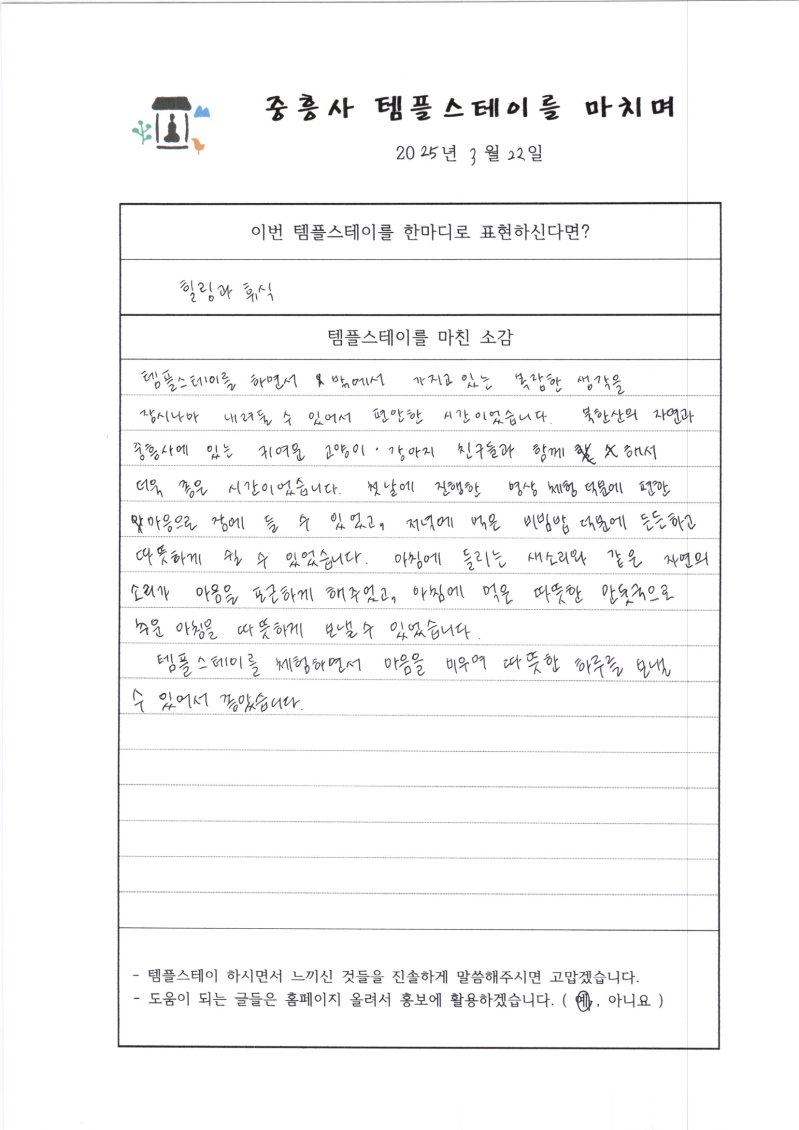 중흥사 템플스테이를 마치며
2025년 3월 22일
이번 템플스테이를 한마디로 표현하신다면?
힐링과 휴식
템플스테이를 마친 소감
템플스테이를 하면서 밖에서 가지고 있는 복잡한 생각을
잠시나마 내려둘 수 있어서 편안한 시간이었습니다. 북한산의 자연과
중흥사에 있는 귀여운 고양이·강아지 친구들과 함께 해서
더욱 좋은 시간이었습니다. 첫날에 진행한 명상 체험 덕분에 편한
마음으로 잠에 들 수 있었고, 저녁에 먹은 비빔밥 덕분에 든든하고
따뜻하게 쉴 수 있었습니다. 아침에 들리는 새소리와 같은 자연의
소리가 마음을 포근하게 해주었고, 아침에 먹은 따뜻한 만둣국으로
추운 아침을 따뜻하게 보낼 수 있었습니다.
템플스테이를 체험하면서 마음을 비우며 따뜻한 하루를 보낼
수 있어서 좋았습니다.
- 템플스테이 하시면서 느끼신 것들을 진솔하게 말씀해주시면 고맙겠습니다.
- 도움이 되는 글들은 홈페이지 올려서 홍보에 활용하겠습니다. ( 예, 아니요 )